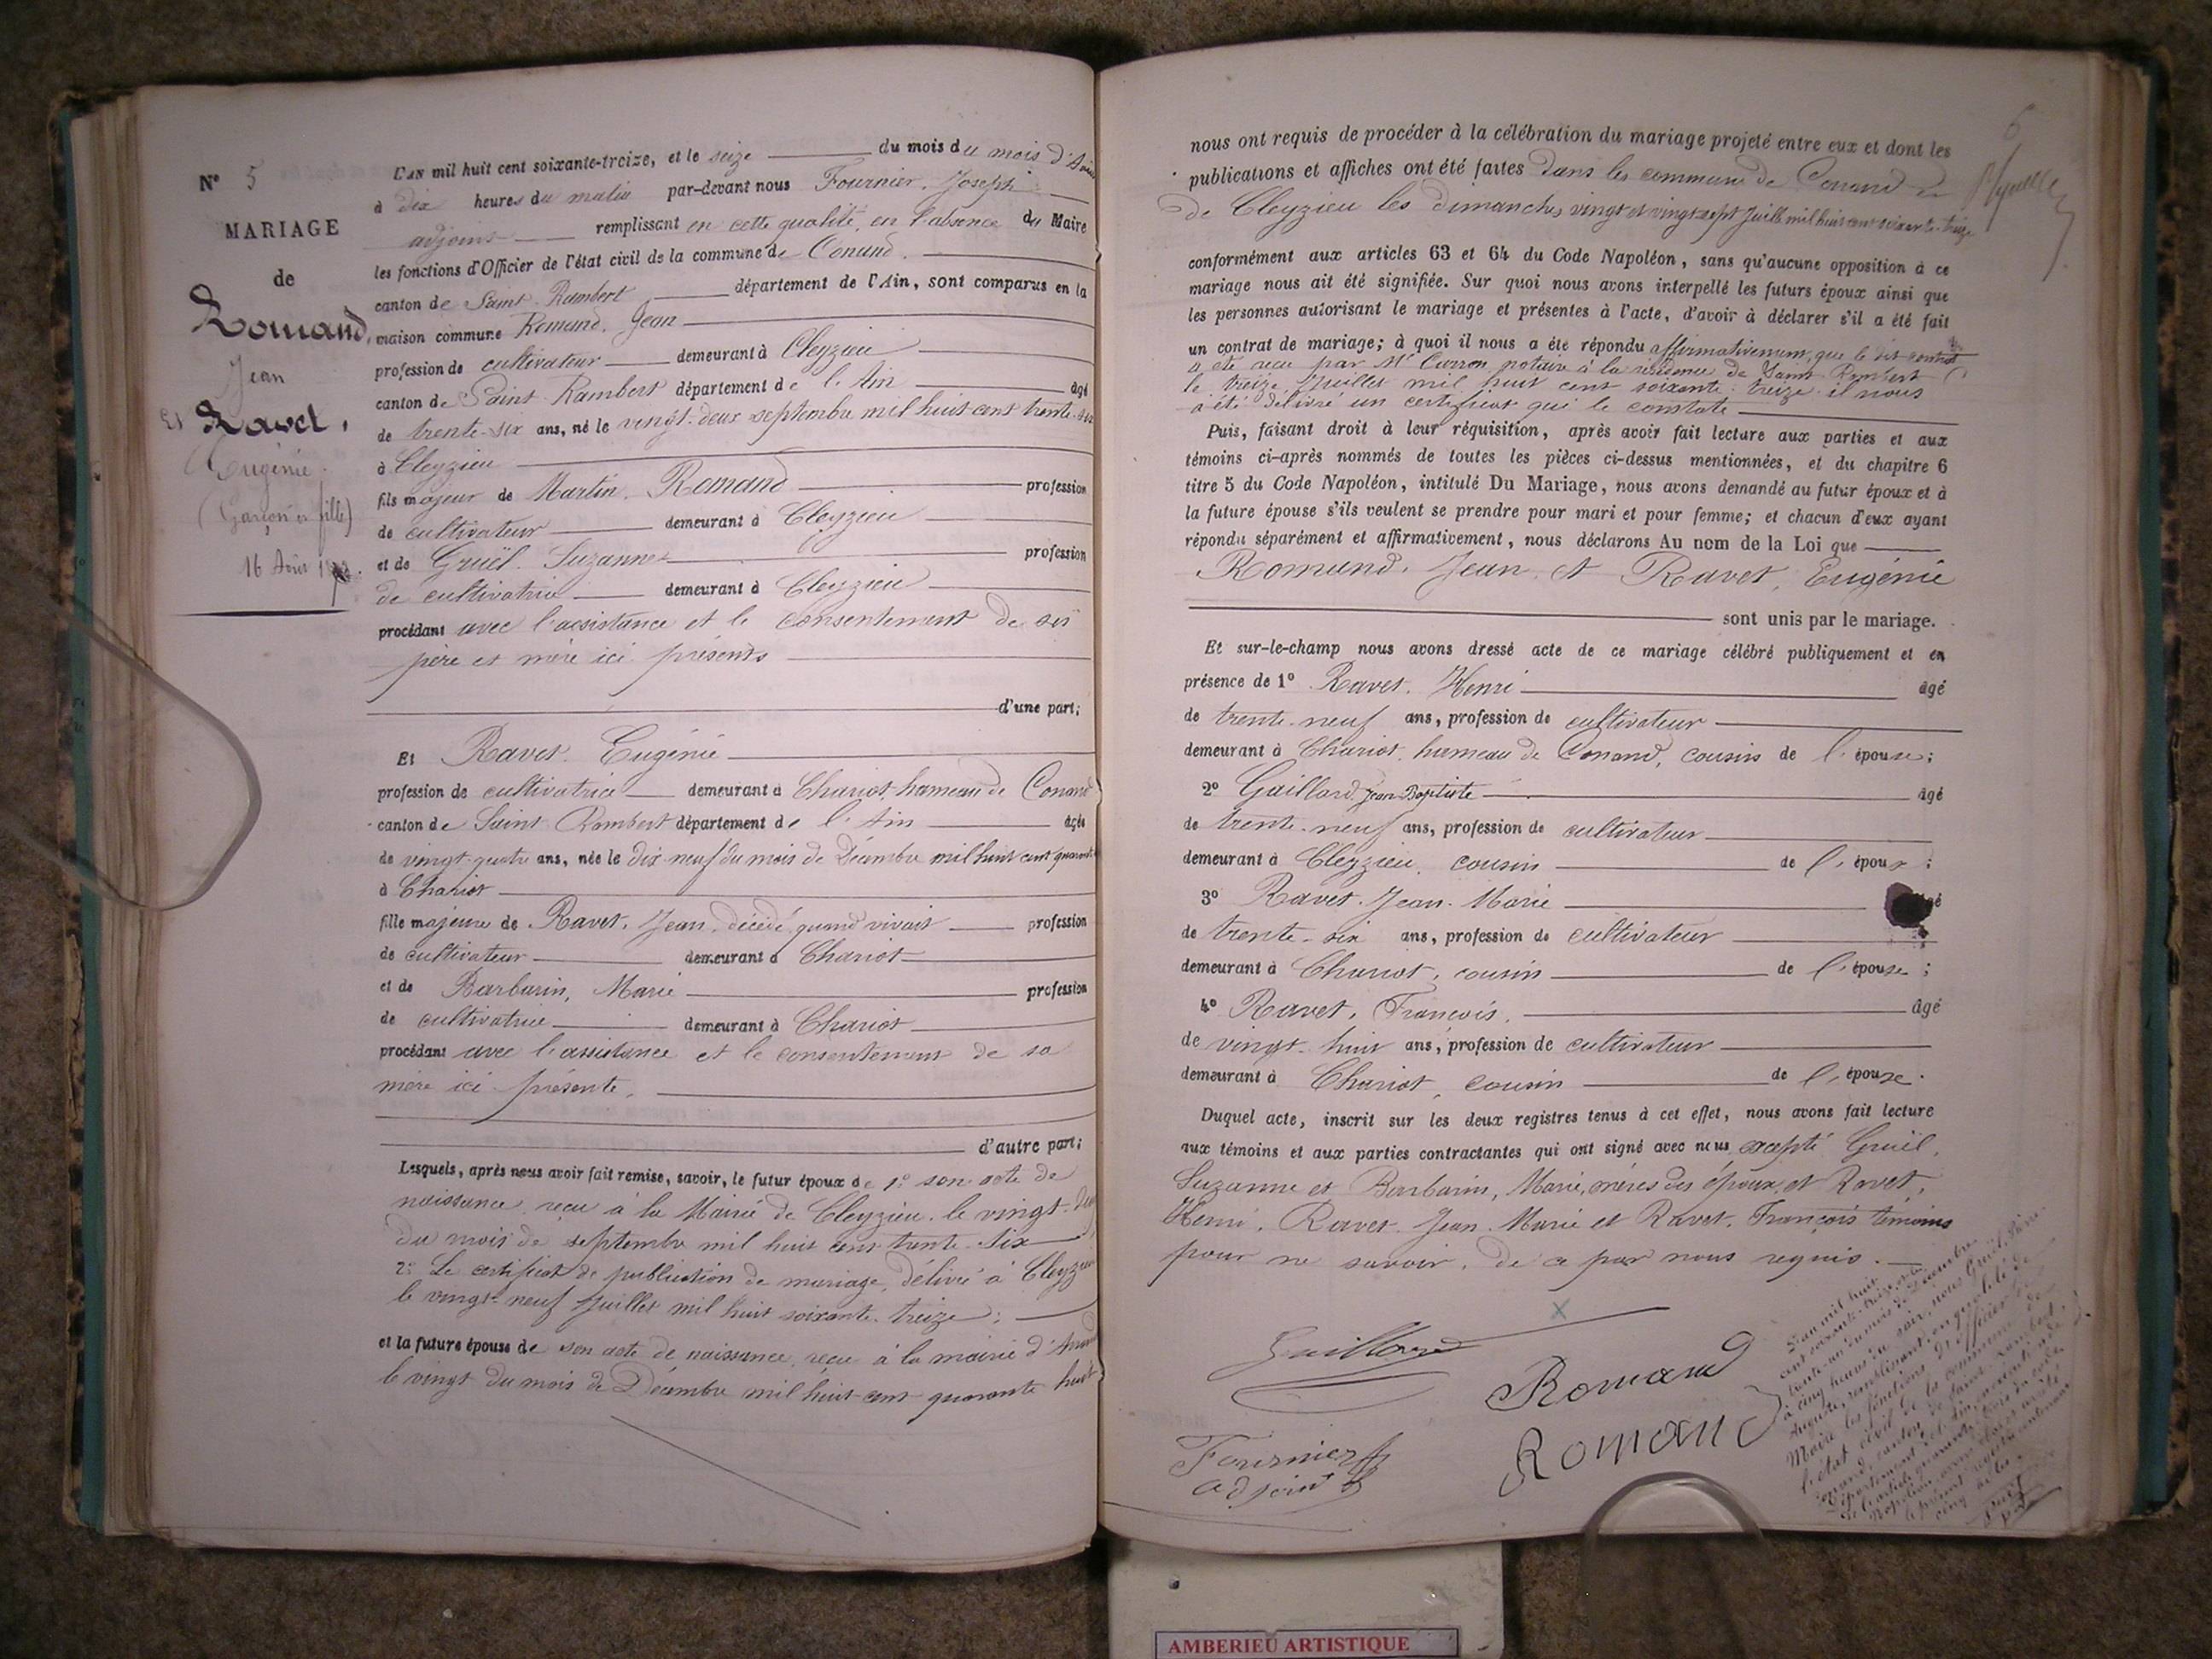 N° 5
MARIAGE
de
Romand,
Jean
Et Ravet,
Eugénie.
(Garçon et fille)
16 Août
L'AN mil huit cent soixante-treize, et le seize du mois du mois d'Août
à dix heures du matin par-devant nous Fournier, Joseph
adjoint remplissant en cette qualité, en l'absence du Maire
les fonctions d'Officier de l'état civil de la commune de Conand.
canton de Saint Rambert département de l'Ain, sont comparus en la
maison commune Romand, Jean
profession de cultivateur demeurant à Cleyzieu
canton de Saint Rambert département de l'Ain âgé
de trente-six ans, né le vingt-deux septembre mil huit cent trente-six
à Cleyzieu
fils majeur de Martin Romand profession
de cultivateur demeurant à Cleyzieu
et de Gruël Suzanne profession
de cultivatrice demeurant à Cleyzieu
procédant avec l'assistance et le consentement de ses
père et mère ici présents
d'une part;
Et Ravet Eugénie
profession de cultivatrice demeurant à Chariot, hameau de Conand
canton de Saint Rambert département de l'Ain âgée
de vingt-quatre ans, née le dix-neuf du mois de Décembre mil huit cent quarante
à Chariot
fille majeure de Ravet, Jean, décédé quand vivait profession
de cultivateur demeurant à Chariot
et de Barbarin, Marie profession
de cultivatrice demeurant à Chariot
procédant avec l'assistance et le consentement de sa
mère ici présente,
d'autre part;
Lesquels, après nous avoir fait remise, savoir, le futur époux de 1° son acte de
naissance reçu à la Mairie de Cleyzieu le vingt-deux
du mois de septembre mil huit cent trente-six
2° Le certificat de publication de mariage, délivré à Cleyzieu
le vingt-neuf Juillet mil huit soixante-treize;
et la future épouse de son acte de naissance, reçu à la mairie d'Arand
le vingt du mois de Décembre mil huit cent quarante huit
6
nous ont requis de procéder à la célébration du mariage projeté entre eux et dont les
publications et affiches ont été faites dans les communes de Conand et
de Cleyzieu les dimanches vingt et vingt sept Juillet mil huit cent soixante-treize
conformément aux articles 63 et 64 du Code Napoléon, sans qu'aucune opposition à ce
mariage nous ait été signifiée. Sur quoi nous avons interpellé les futurs époux ainsi que
les personnes autorisant le mariage et présentes à l'acte, d'avoir à déclarer s'il a été fait
un contrat de mariage; à quoi il nous a été répondu affirmativement, que le dit contrat
a été reçu par Mr Carron notaire à la résidence de Saint-Rambert
le treize Juillet mil huit cent soixante-treize il nous
a été délivré un certificat qui le constate
Puis, faisant droit à leur réquisition, après avoir fait lecture aux parties et aux
témoins ci-après nommés de toutes les pièces ci-dessus mentionnées, et du chapitre 6
titre 5 du Code Napoléon, intitulé Du Mariage, nous avons demandé au futur époux et à
la future épouse s'ils veulent se prendre pour mari et pour femme; et chacun d'eux ayant
répondu séparément et affirmativement, nous déclarons Au nom de la Loi que
Romand, Jean, et Ravet, Eugénie
sont unis par le mariage.
Et sur-le-champ nous avons dressé acte de ce mariage célébré publiquement et en
présence de 1° Ravet, Henri âgé
de trente-neuf ans, profession de cultivateur
demeurant à Chariot, hameau de Conand, cousin de l'épouse;
2° Gaillard Jean Baptiste âgé
de trente-neuf ans, profession de cultivateur
demeurant à Cleyzieu, cousin de l'époux;
3° Ravet Jean-Marie âgé
de trente-six ans, profession de cultivateur
demeurant à Chariot, cousin de l'épouse;
4° Ravet, François, âgé
de vingt-huit ans, profession de cultivateur
demeurant à Chariot, cousin de l'épouse.
Duquel acte, inscrit sur les deux registres tenus à cet effet, nous avons fait lecture
aux témoins et aux parties contractantes qui ont signé avec nous excepté Gruël,
Suzanne et Barbarin, Marie, mères des époux, et Ravet,
Henri, Ravet Jean-Marie et Ravet, François témoins
pour ne savoir, de ce par nous requis.
Gaillard
Romand
Romand
Fournier
adjoint
L'an mil huit
cent soixante treize et le
trente-un du mois de Décembre
à cinq heures du soir, nous Gruël Pierre
Auguste, remplissant en qualité de
Maire les fonctions d'officier de
l'état civil de la commune de
Conand, canton de Saint-Rambert
département de l'Ain, en exécution de
l'article quarante trois du code
Napoléon, avons clos et arrêté
le présent registre contenant
cinq actes
AMBERIEU ARTISTIQUE